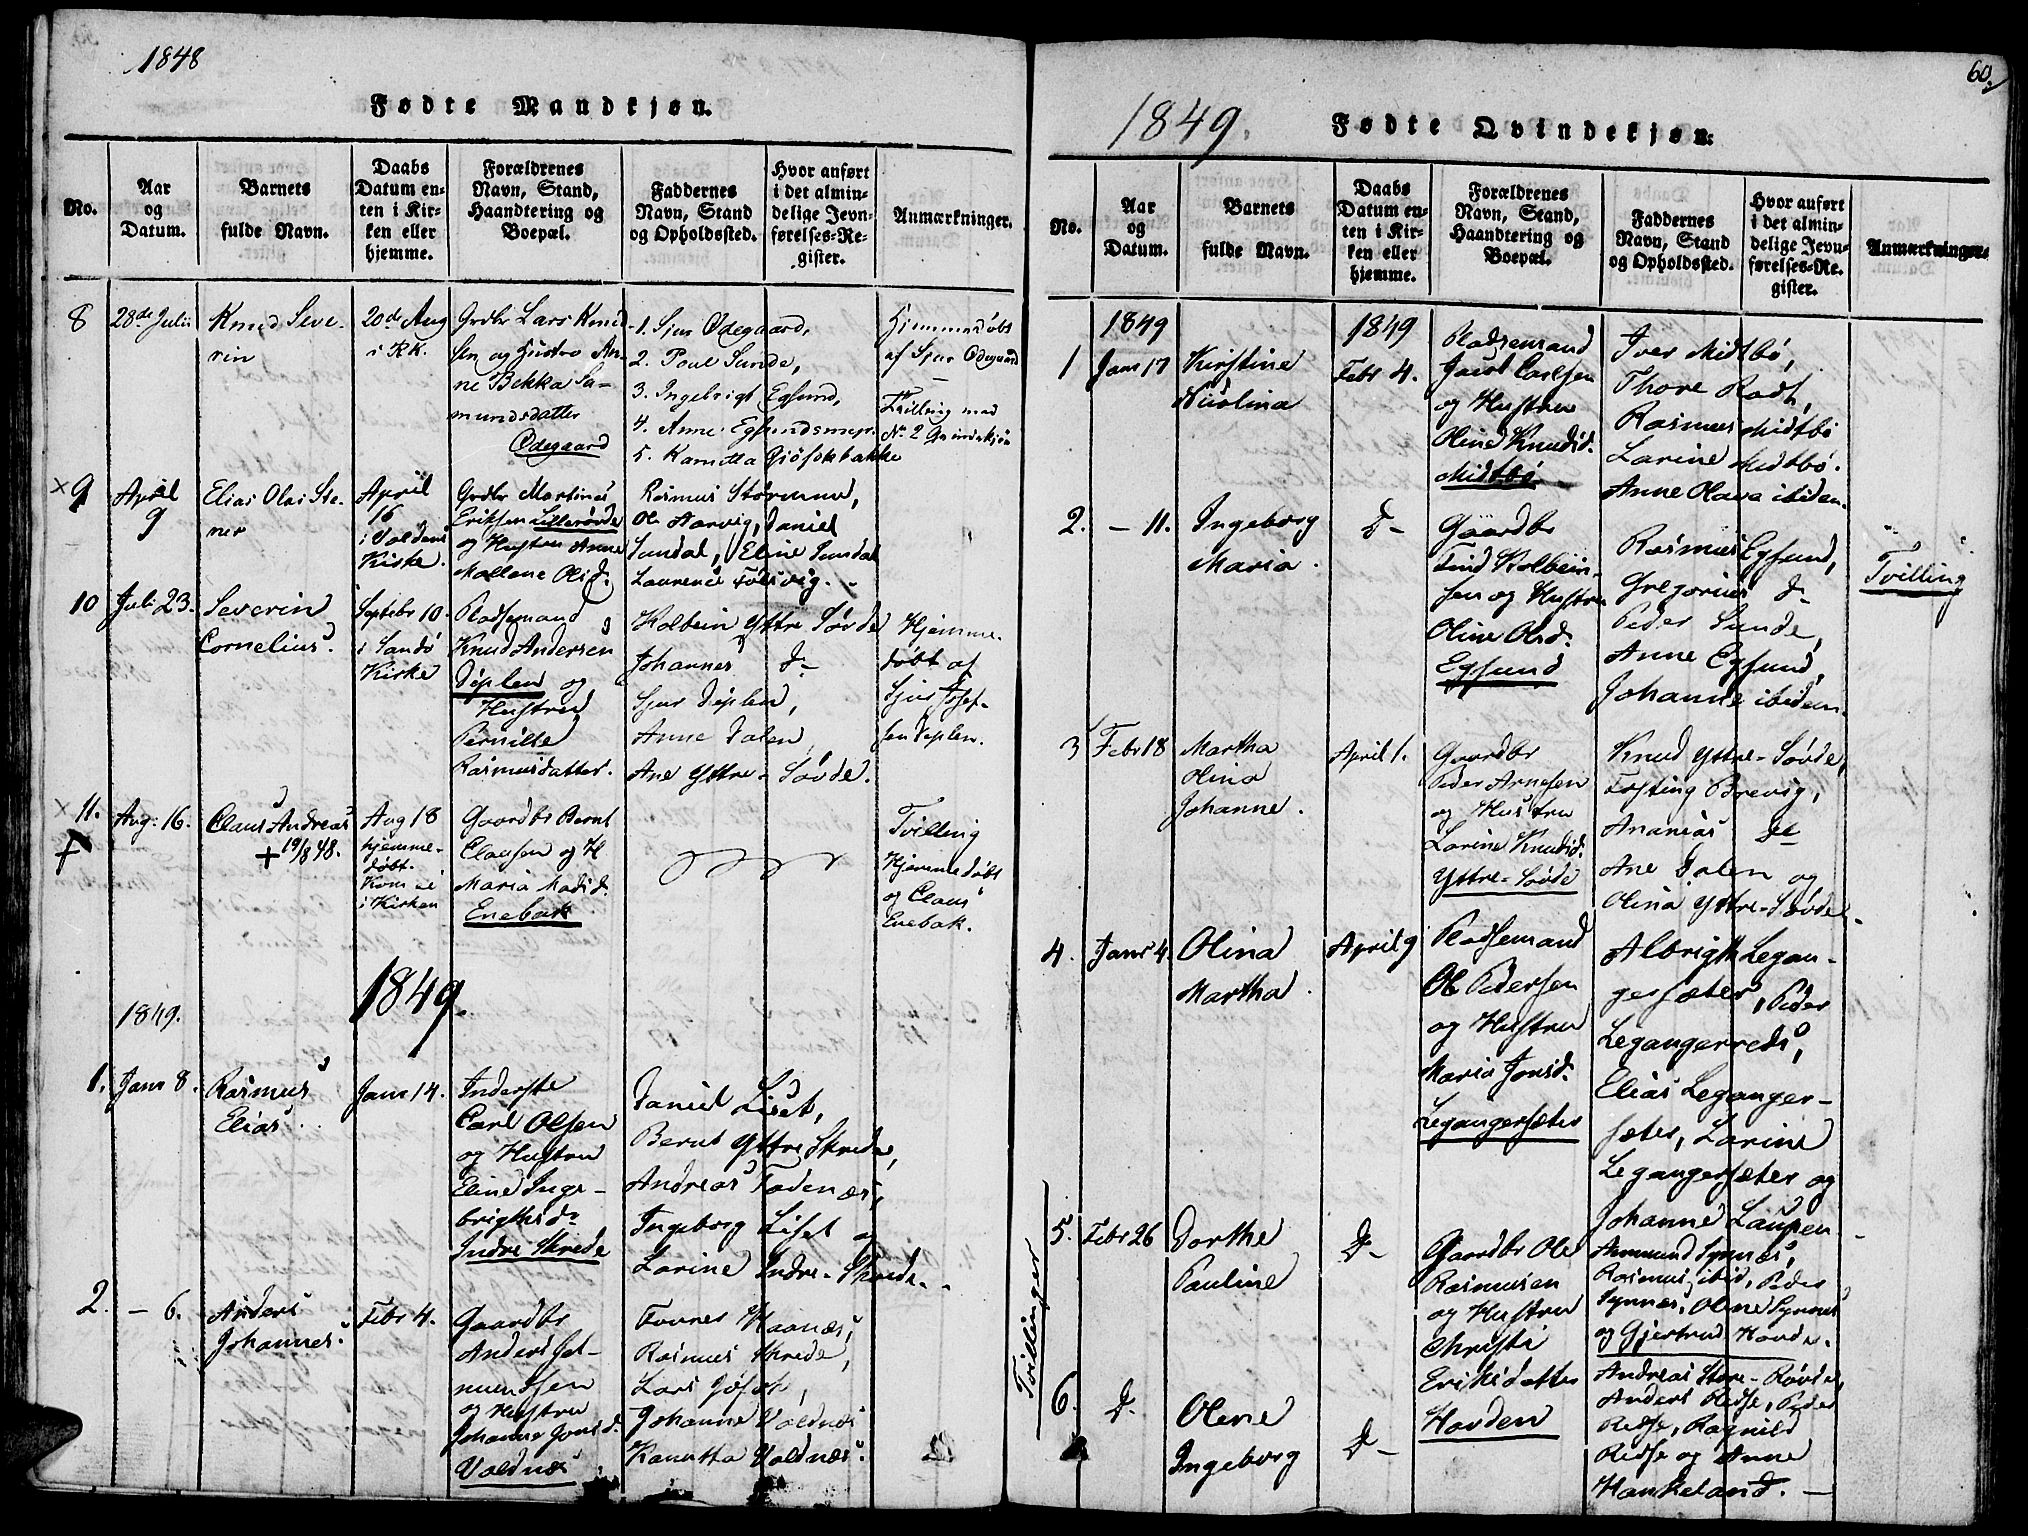 1848
Fødte Mandkjøn.
No.
Aar
og
Datum.
Barnets
fulde Navn.
Daabs
Datum en-
ten i Kir-
ken eller
hjemme.
Forældrenes
Navn, Stand,
Haandtering og
Boepæl.
Faddernes
Navn, Stand
og Opholdssted.
Hvor anført
i det almin-
delige Jevn-
førelses-Re-
gister.
Anmærkninger.
8
28de Julii
Knud Seve-
rin
20de Aug
i RK.
Grdbr Lars Knud
sen og Hustro An-
ne Bekka Sa-
mundsdatter
Ødegaard
1. Sjur Ødegaard,
2. Poul Sunde,
3. Ingebrigt Egsund,
4. Anne Egsundsnep.
5. Kanutta Gjösokbakke
Hjemmedøbt
af Sjur Ødegaard
Tvilling med
No 2 Qvindekjön
x 9
April
9
Elias Olai Ste-
ner
April
16
i Voldens
Kirke.
Grdbr Martinus
Eriksen Lillerövde
og Hustru Anne
Mallene Olsd.
Rasmus Störeeme,
Ole Aarvig, Daniel
Sundal, Eline Sundal
Laurence Folsvig.
10
Juli 23.
Severin
Cornelius.
Septebr 10.
i Sandö
Kirke
Pladsemand
Knud Andersen
Döplen og
Hustrue
Pernille
Rasmusdatter.
Kolbein Yttre Sövde
Johannes do
Sjur Döplen,
Anne Dalen,
Ane Yttre-Sövde.
Hjemme-
döbt af
Sjur Josef-
sen Döplen.
x 11.
†
Aug. 16.
Claus Andreas
+ 19/8 48.
Aug 18
hjemme-
döbt.
Kom ei
i Kirken
Gaardbr Bernt
Clausen og H
Maria Madsd.
Enebak
Tvilling
Hjemmedöbt
og Claus
Enebak.
1849.
1849.
1.
Janr 8.
Rasmus
Elias.
Janr 14.
Inderste
Carl Olsen
og Hustrue
Eline Inge-
brigtsd.
Indre Skrede
Daniel Liset,
Bernt Yttre Skrede,
Andreas Fodenæs,
Ingeborg Liset og
Larine Indre-Skrede.
2.
- 6.
Anders
Johannes.
Febr 4.
Gaardbr
Anders Sal-
mundsen
og Hustru
Johanne Jonsd.
Voldnæs
Tovner Haanæs,
Rasmus Skrede,
Lars Jösok,
Johanne Voldnæs
Kanutta Voldnæs.
60.
1849.
Fødte Qvindekjøn.
No.
Aar
og
Datum.
Barnets
fulde Navn.
Daabs
Datum en-
ten i Kir-
ken eller
hjemme.
Forældrenes
Navn, Stand,
Haandtering og
Boepæl.
Faddernes
Navn, Stand
og Opholdssted.
Hvor anført
i det almin-
delige Jevn-
førelses-Re-
gister.
Anmærkninger.
1849
1849
1
Janr 17
Kirstine
Nicolina
Febr 4.
Pladsemand
Jacob Carlsen
og Hustrue
Oline Knudsd.
Midtbö
Iver Midtbö,
Thore Rodt,
Rasmus Midtbö
Larine Midtbö.
Anne Olava ibidem.
2.
- 11.
Ingeborg
Maria.
D-
Gaardbr
Find Kolbein-
sen og Hustru
Oline Olsd.
Egsund
Rasmus Egsund,
Gregorius do
Peder Sunde,
Anne Egsund,
Johanne ibidem.
Tvilling
3
Febr 18
Martha
Olina
Johanne.
April 1.
Gaardbr
Peder Arnesen
og Hustru
Larine Knudsd.
Yttre-Sövde
Knud Yttre-Sövde,
Tosting Brevig,
Ananias do
Ane Dalen og
Olina Yttre-Sövde.
4.
Janr 4.
Olina
Martha.
April 9
Pladsemand
Ole Pedersen
og Hustrue
Maria Jonsd.
Legangersæter
Albrigt Legan-
gersæter, Peder
Legangerreds,
Elias Leganger-
sæter, Larine
Legangersæter og
Johanne Laupen.
Tvillinger
5.
Febr 26
Dorthe
Pauline
D-
Gaardbr Ole
Rasmusen
og Hustrue
Christi
Eriksdatter
Hovden
Aamund Synnæs,
Rasmus ibid, Peder
Synnæs, Olene Synnæs
og Gjertrud Hovde.
6.
D.
Olene
Ingeborg
D-
Andreas Store-Rövde,
Anders Redse, Peder
Redse, Ragnild
Redse og Anne
Haukeland.